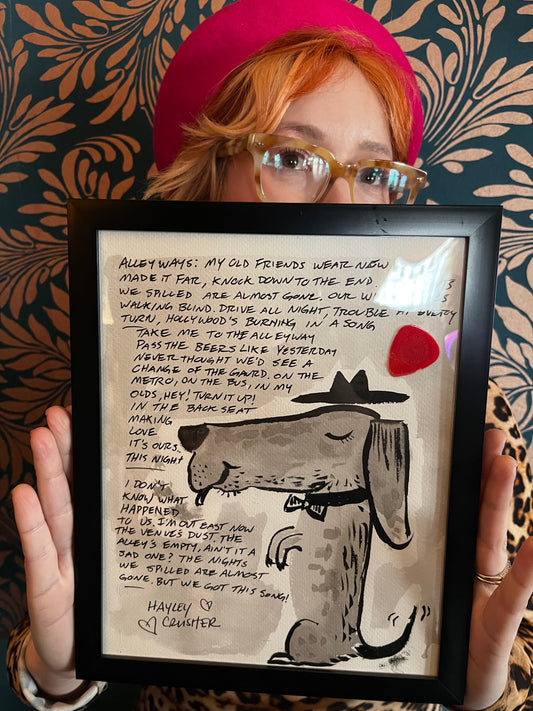 ALLEYWAYS: MY OLD FRIENDS WEAR NOW
MADE IT FAR, KNOCK DOWN TO THE END.
WE SPILLED ARE ALMOST GONE. OUR
WALKING BLIND. DRIVE ALL NIGHT, TROUBLE AT EVERY
TURN, HOLLYWOOD'S BURNING IN A SONG
TAKE ME TO THE ALLEYWAY
PASS THE BEERS LIKE YESTERDAY
NEVER THOUGHT WE'D SEE A
CHANGE OF THE GAURD. ON THE
METRO, ON THE BUS, IN MY
OLDS, HEY! TURN IT UP!
IN THE BACK SEAT
MAKING
LOVE
IT'S OURS..
THIS NIGHT
I DON'T
KNOW WHAT
HAPPENED
TO US. I'M OUT EAST NOW
THE VENUE'S DUST. THE
ALLEY'S EMPTY, AIN'T IT A
SAD ONE? THE NIGHTS
WE SPILLED ARE ALMOST
GONE. BUT WE GOT THIS SONG!
HAYLEY
CRUSHER